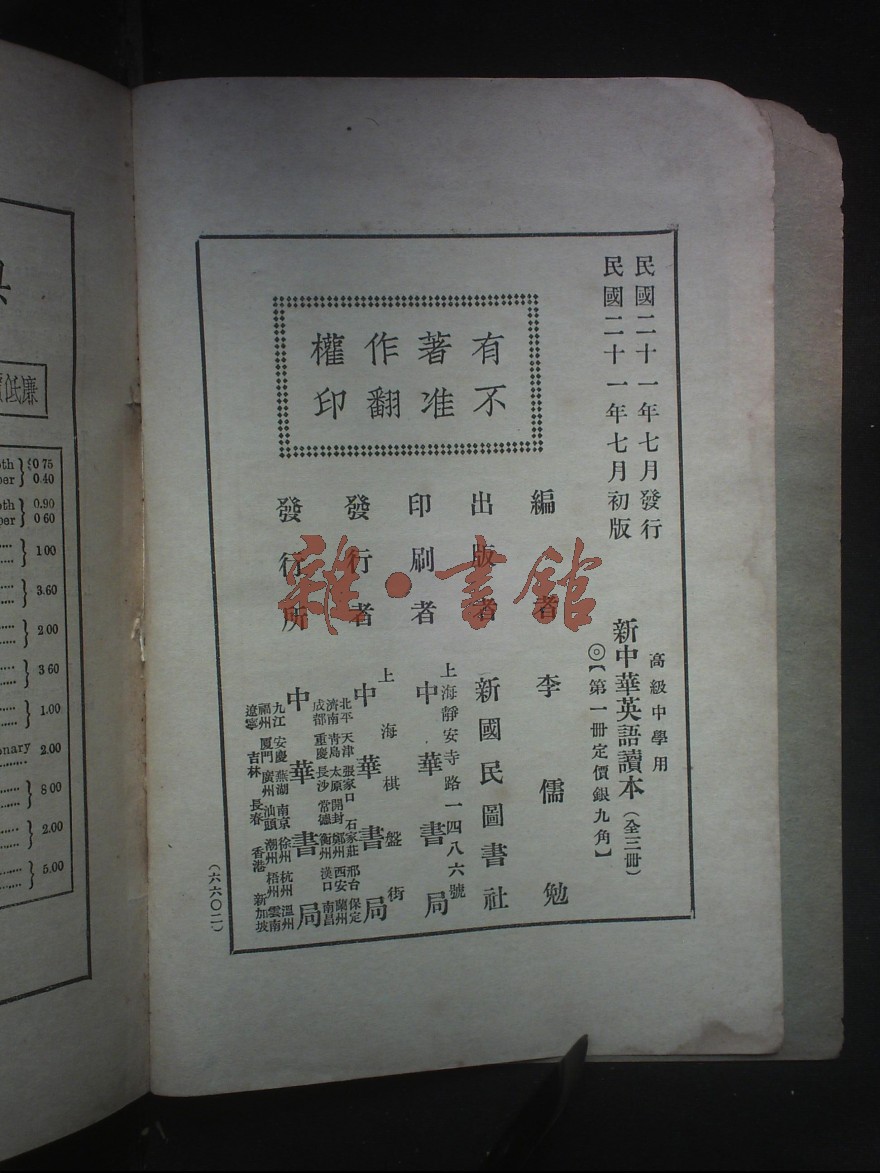 民國二十一年七月發行
民國二十一年七月初版
高級中學用
新中華英語讀本（全三冊）
◎【第一冊定價銀九角】
有著作權
不准翻印
編者 李儒勉
出版者 新國民圖書社
印刷者 上海靜安寺路一四八六號
中華書局
發行者 上海棋盤街
中華書局
發行所 中華書局
北平 天津 張家口 石家莊 邢台 保定
濟南 青島 太原 開封 鄭州 西安 蘭州
成都 重慶 長沙 常德 衡州 漢口 南昌
九江 安慶 蕪湖 南京 徐州 杭州 溫州
福州 廈門 廣州 汕頭 潮州 梧州 雲南
遼寧 吉林 長春 香港 新加坡
（六六〇二）
雜·書館
低廉
0.75
per } 0.40
0.90
per } 0.60
1.00
3.60
2.00
3.60
1.00
2.00
8.00
2.00
5.00